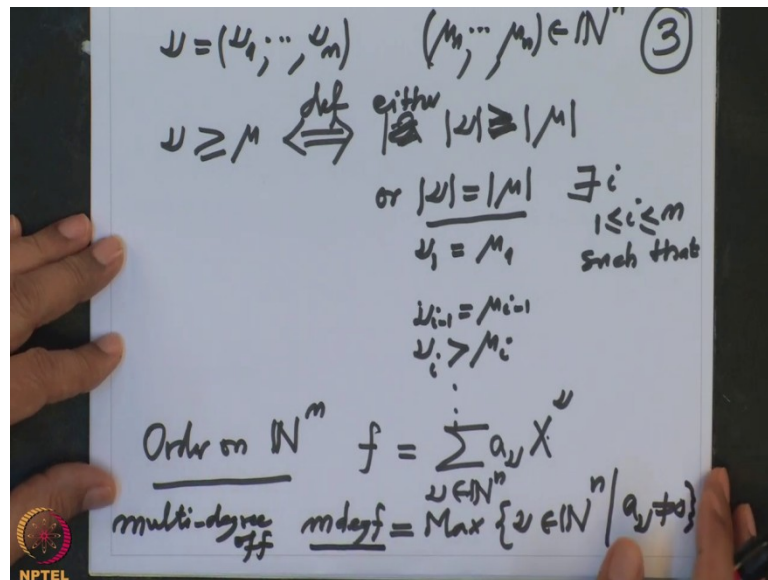 ν = (ν₁, ..., νₙ) (μ₁, ... μₙ) ∈ ℕⁿ ③
ν ≥ μ ⟺ def either |ν| ≥ |μ|
or |ν| = |μ| ∃ i
1 ≤ i ≤ n
ν₁ = μ₁ such that
νᵢ₋₁ = μᵢ₋₁
νᵢ > μᵢ
Order on ℕⁿ f = ∑ a_ν X^ν
ν ∈ ℕⁿ
multi-degree mdeg f = Max {ν ∈ ℕⁿ | a_ν ≠ 0}
of f
NPTEL